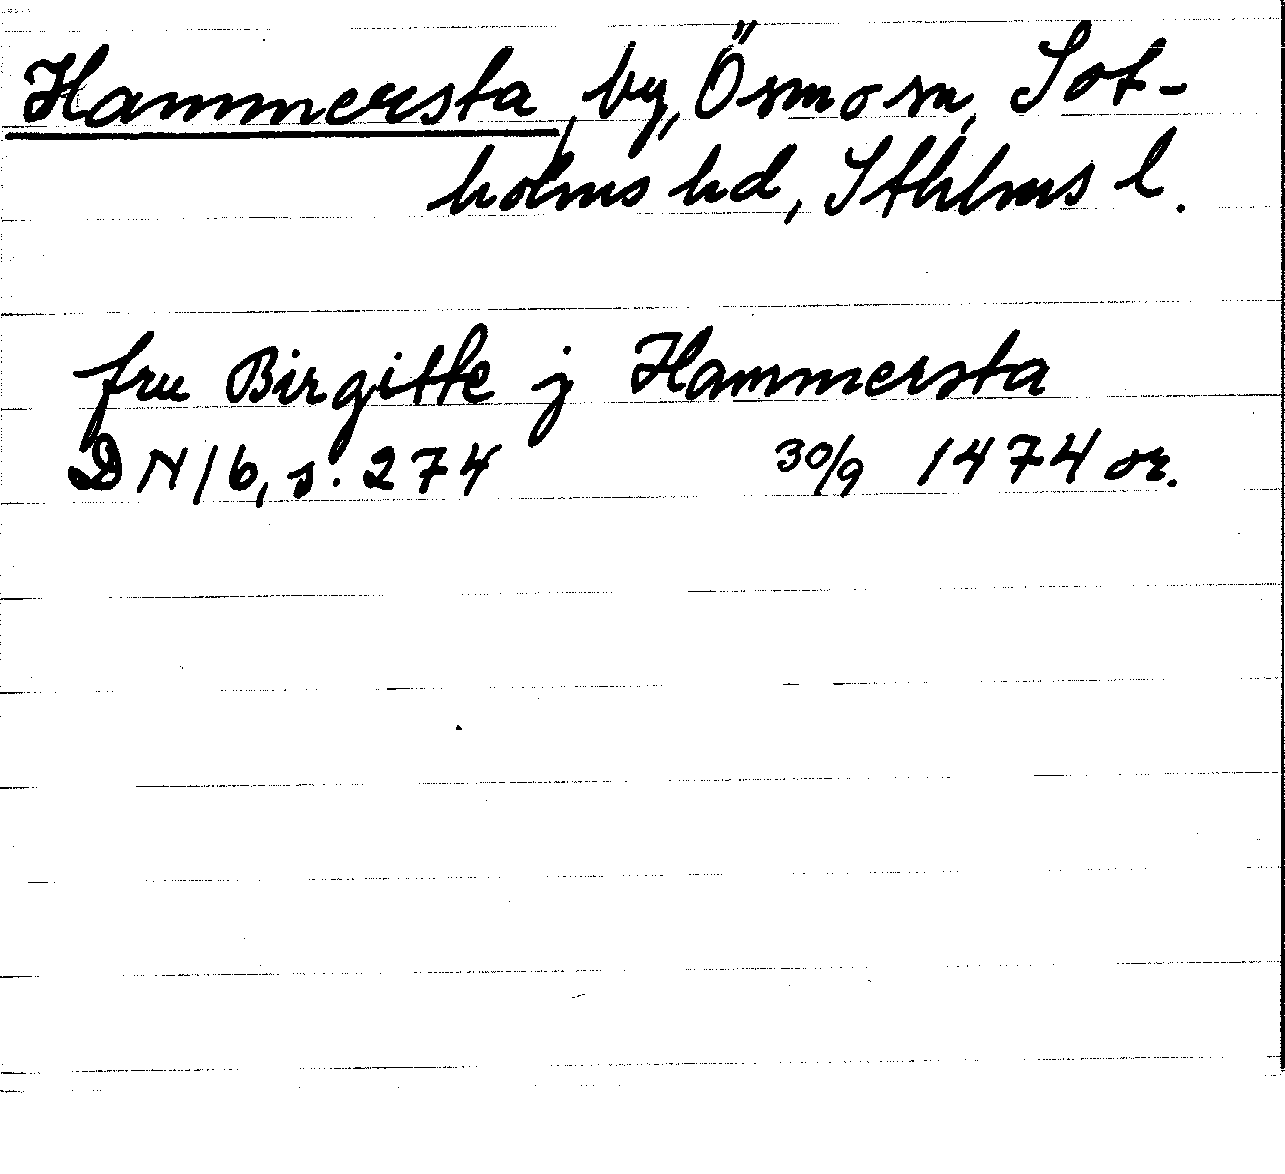 Hammersta, by, Ösmo sn, Sot-
holms hd, Sthlms l.
fru Birgitte j Hammersta
DN 16, s. 274 30/9 1474 or.